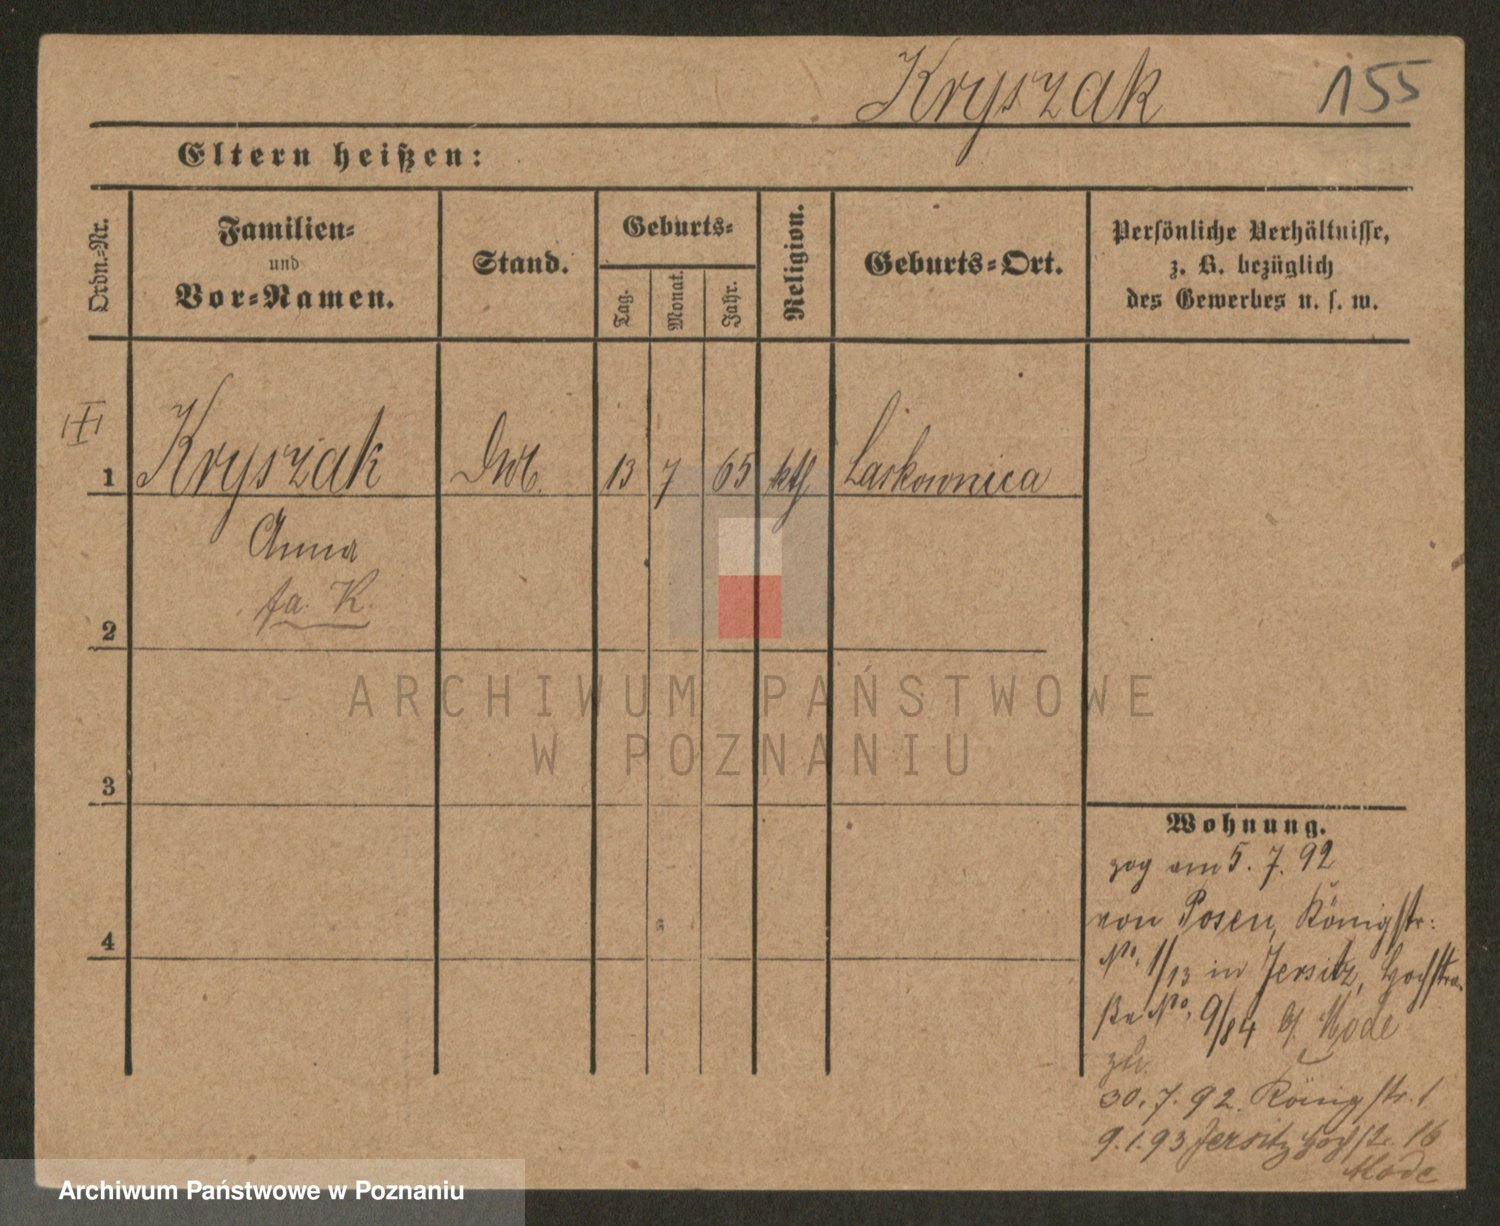 Kryszak 155
Eltern heißen:
Ordn.-Nr.
Familien-
und
Vor-Namen.
Stand.
Geburts-
Tag.
Monat.
Jahr.
Religion.
Geburts-Ort.
Persönliche Verhältnisse,
z. B. bezüglich
des Gewerbes u. s. w.
1 Kryszak 13 7 65 kth Laskownica
Anna
2
3
4
ARCHIWUM PAŃSTWOWE
W POZNANIU
Wohnung.
zog am 5. 7. 92
von Posen, Königstr:
No. 1/13 in Jersitz, Hochstra-
ße No. 9/84 b/ Mode
zu.
30. 7. 92. Königstr. 1
9. 1. 93 Jersitz Hochstr. 16
Mode
Archiwum Państwowe w Poznaniu